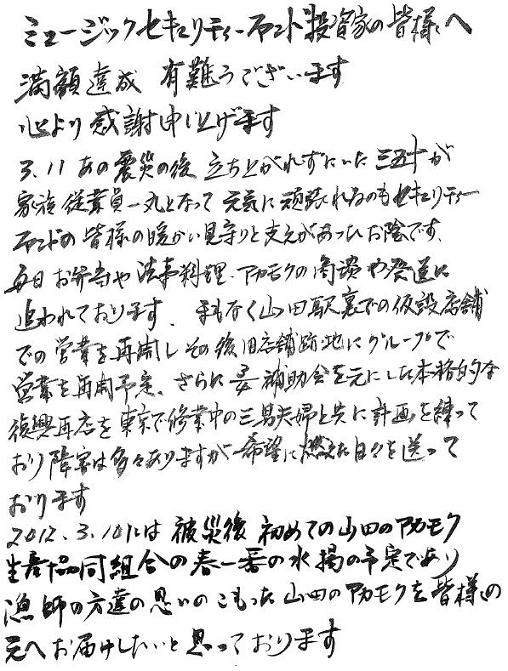 ミュージックセキュリティーファンド投資家の皆様へ
満額達成 有難うございます
心より感謝申し上げます
3.11 あの震災の後 立ち上がれずにいた 三五十が
家族従業員一丸となって 元気に頑張れるのもセキュリティー
ファンドの皆様の暖かい見守りと支えがあったお陰です、
毎日お弁当や法事料理・アカモクの 発送に
追われております、まもなく山田駅裏での仮設店舗
での営業を再開しその後旧店舗跡地にグループで
営業を再開予定、さらに 補助金を元にした本格的な
復興再店を東京で修業中の三男夫婦と共に計画を練って
おり障害は多々ありますが希望に燃えた日々を送って
おります
2012.3.10には 被災後 初めての山田のアカモク
生産協同組合の春一番の水揚の予定であり
漁師の方達の思いのこもった山田のアカモクを皆様の
元へお届けしたいと思っております